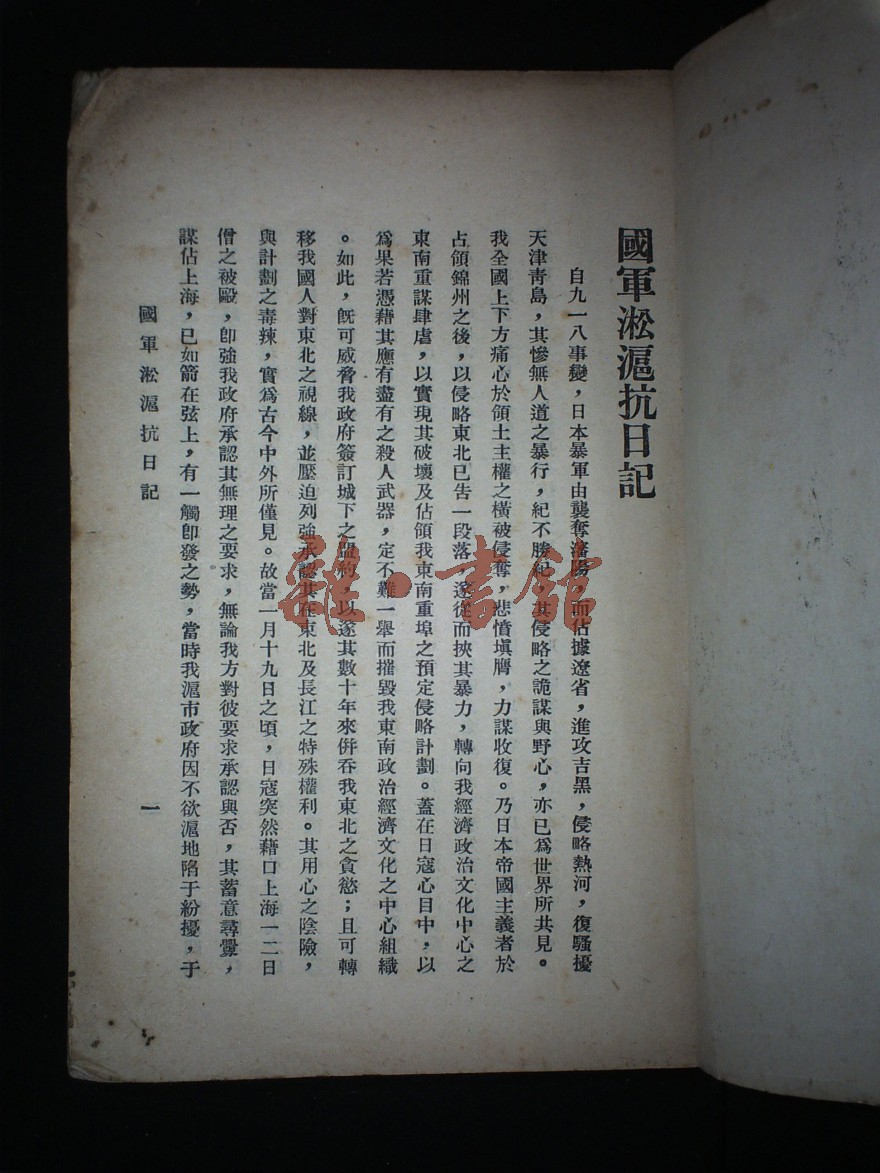 國軍淞滬抗日記
自九一八事變，日本暴軍由襲奪瀋陽，而佔據遼省，進攻吉黑，侵略熱河，復騷擾
天津靑島，其慘無人道之暴行，紀不勝紀，其侵略之詭謀與野心，亦已爲世界所共見。
我全國上下方痛心於領土主權之橫被侵奪，悲憤塡膺，力謀收復。乃日本帝國主義者於
占領錦州之後，以侵略東北已告一段落，遂從而挾其暴力，轉向我經濟政治文化中心之
東南重謀肆虐，以實現其破壞及佔領我東南重埠之預定侵略計劃。蓋在日寇心目中，以
爲果若憑藉其應有盡有之殺人武器，定不難一舉而摧毀我東南政治經濟文化之中心組織
。如此，旣可威脅我政府簽訂城下之盟約，以遂其數十年來併吞我東北之貪慾；且可轉
移我國人對東北之視線，並壓迫列強承認其在東北及長江之特殊權利。其用心之陰險，
與計劃之毒辣，實爲古今中外所僅見。故當一月十九日之頃，日寇突然藉口上海一二日
僧之被毆，卽強我政府承認其無理之要求，無論我方對彼要求承認與否，其蓄意尋釁，
謀佔上海，已如箭在弦上，有一觸卽發之勢，當時我滬市政府因不欲滬地陷于紛擾，于
國軍淞滬抗日記
一
雜·書館